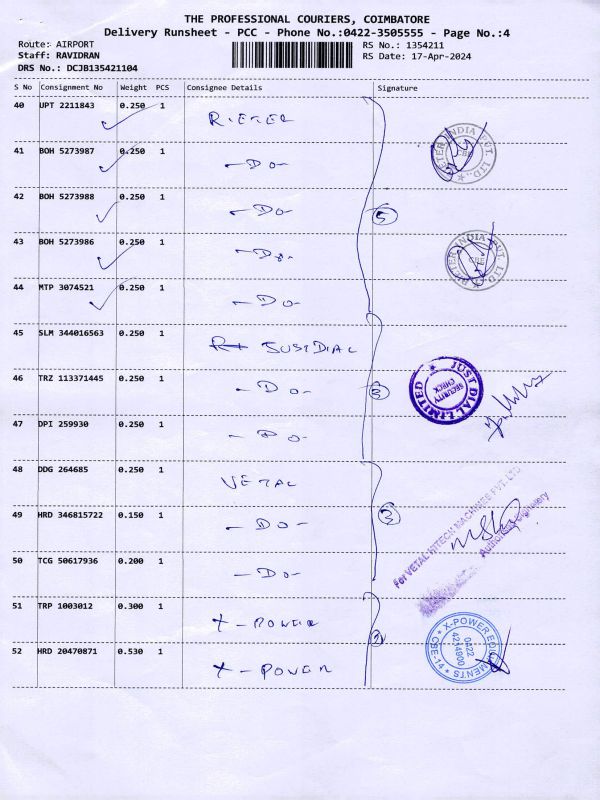 THE PROFESSIONAL COURIERS, COIMBATORE
Delivery Runsheet - PCC - Phone No.:0422-3505555 - Page No.:4
Route: AIRPORT
RS No.: 1354211
Staff: RAVIDRAN
RS Date: 17-Apr-2024
DRS No.: DCJB135421104
S No Consignment No Weight PCS Consignee Details Signature
40 UPT 2211843 0.250 1 RIETER
RIETER INDIA PVT. LTD. CBE
41 BOH 5273987 0.250 1 -DO-
42 BOH 5273988 0.250 1 -DO- 5
43 BOH 5273986 0.250 1 -DO-
RIETER INDIA PVT. LTD. CBE
44 MTP 3074521 0.250 1 -DO-
45 SLM 344016563 0.250 1 JUSTDIAL
46 TRZ 113371445 0.250 1 -DO- 3
JUST DIAL LIMITED SECURITY CHECK
47 DPI 259930 0.250 1 -DO-
48 DDG 264685 0.250 1 VETAL
49 HRD 346815722 0.150 1 -DO- 3
For VETAL HITECH MACHINES PVT. LTD
Authorised Signatory
50 TCG 50617936 0.200 1 -DO-
51 TRP 1003012 0.300 1 X-POWER
2
X-POWER EQUIPMENTS CBE-14 0422 4214900
52 HRD 20470871 0.530 1 X-POWER